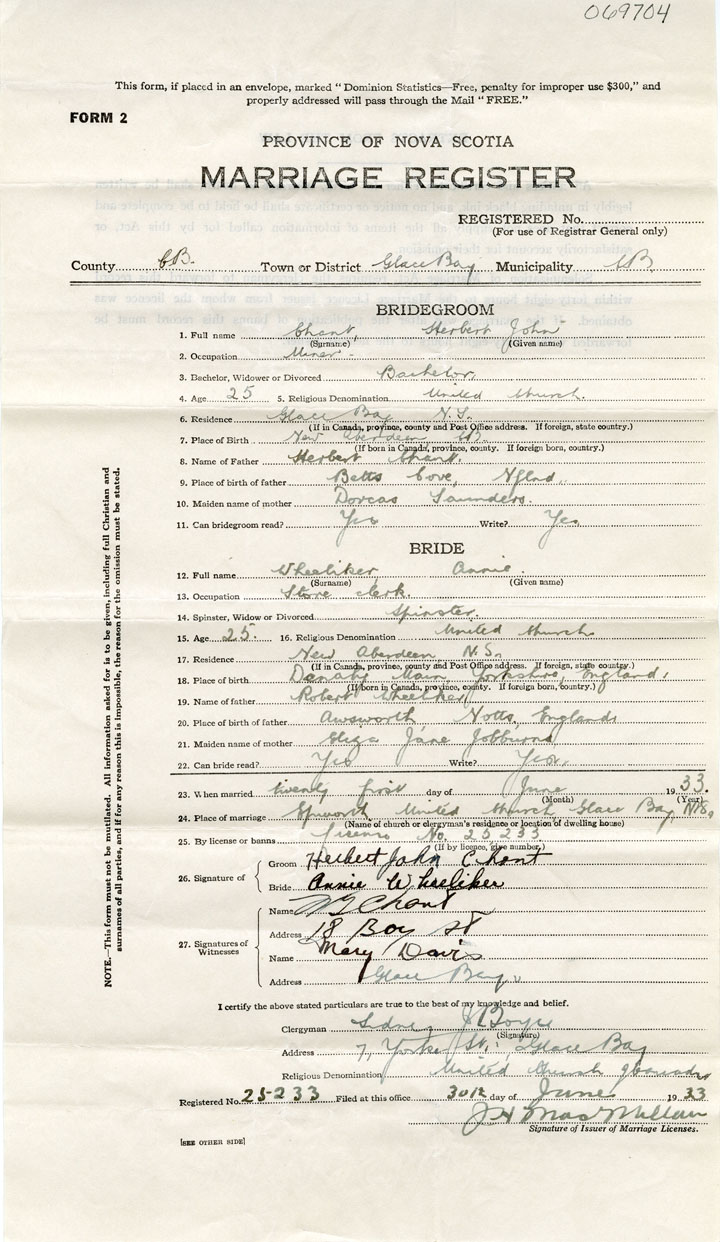 069704
This form, if placed in an envelope, marked "Dominion Statistics—Free, penalty for improper use $300," and
properly addressed will pass through the Mail "FREE."
FORM 2
PROVINCE OF NOVA SCOTIA
MARRIAGE REGISTER
REGISTERED No.
(For use of Registrar General only)
County C.B. Town or District Glace Bay Municipality CB
BRIDEGROOM
1. Full name Chant, Herbert John
(Surname) (Given name)
2. Occupation Miner
3. Bachelor, Widower or Divorced Bachelor
4. Age 25 5. Religious Denomination United Church.
6. Residence Glace Bay N.S.
(If in Canada, province, county and Post Office address. If foreign, state country.)
7. Place of Birth New Aberdeen CB
(If born in Canada, province, county. If foreign born, country.)
8. Name of Father Herbert Chant.
9. Place of birth of father Betts Cove, Nfland
10. Maiden name of mother Dorcas Saunders.
11. Can bridegroom read? Yes Write? Yes
BRIDE
12. Full name Wheeliker Annie.
(Surname) (Given name)
13. Occupation Store clerk.
14. Spinster, Widow or Divorced Spinster.
15. Age 25. 16. Religious Denomination United Church
17. Residence New Aberdeen N.S.
(If in Canada, province, county and Post Office address. If foreign, state country.)
18. Place of birth Denaby Main, Yorkshire, England.
(If born in Canada, province, county. If foreign born, country.)
19. Name of father Robert Wheeliker
20. Place of birth of father Awsworth Notts, England
21. Maiden name of mother Eliza Jane
22. Can bride read? Yes Write? Yes.
23. When married twenty first day of June 1933.
(Month) (Year)
24. Place of marriage Epworth United Church Glace Bay N.S.
(Name of church or clergyman's residence or location of dwelling house)
25. By license or banns License No. 25233
(If by licence, give number.)
26. Signature of
Groom Herbert John Chant
Bride Annie Wheeliker
27. Signatures of Witnesses
Name Chant
Address 18 Boy St
Name Mary Davis
Address Glace Bay
I certify the above stated particulars are true to the best of my knowledge and belief.
Clergyman Sidney J Boyce
(Signature)
Address 7, York St., Glace Bay
Religious Denomination United Church Canada
Registered No. 25233 Filed at this office 30th day of June 1933
J H MacMillan
Signature of Issuer of Marriage Licenses.
[SEE OTHER SIDE]
NOTE.—This form must not be mutilated. All information asked for is to be given, including full Christian and
surnames of all parties, and if for any reason this is impossible, the reason for the omission must be stated.